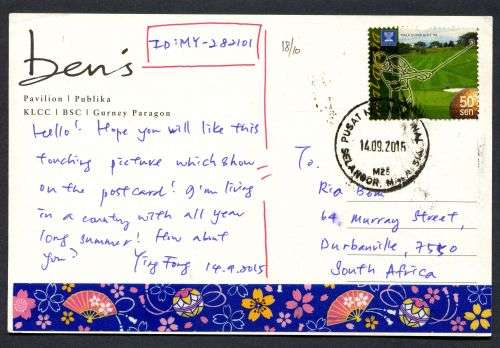 ben's
Pavilion | Publika
KLCC | BSC | Gurney Paragon
ID:MY-282101
Hello! Hope you will like this
touching picture which show
on the postcard! I'm living
in a country with all year
long summer! How about
you? Ying Fong 14.9.2015
18/10
50
sen
PUSAT
14.09.2015
M25
SELANGOR, MALAYSIA
To,
Ria
64 Murray Street,
Durbanville, 7550
South Africa